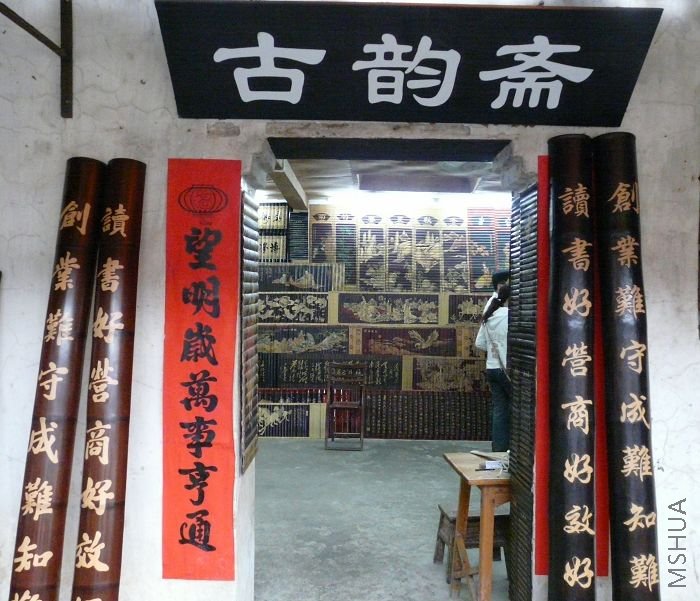 古韵斋
創業難守成難知難
讀書好營商好效好
望明歲萬事亨通
讀書好營商好效好
創業難守成難知難
MSHUA